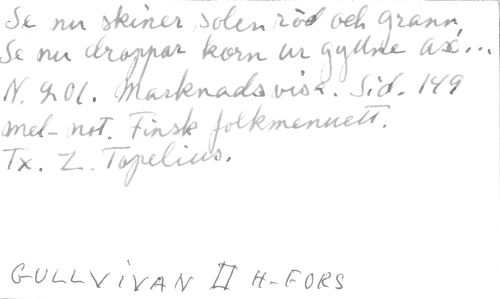 Se nu skiner solen röd och grann,
Se nu droppar korn ur gyllne ax'...
N. 201. Marknadsvisa. Sid. 149
mel-not. Finsk folkmenuett.
Tx. Z. Topelius.
GULLVIVAN II H-FORS